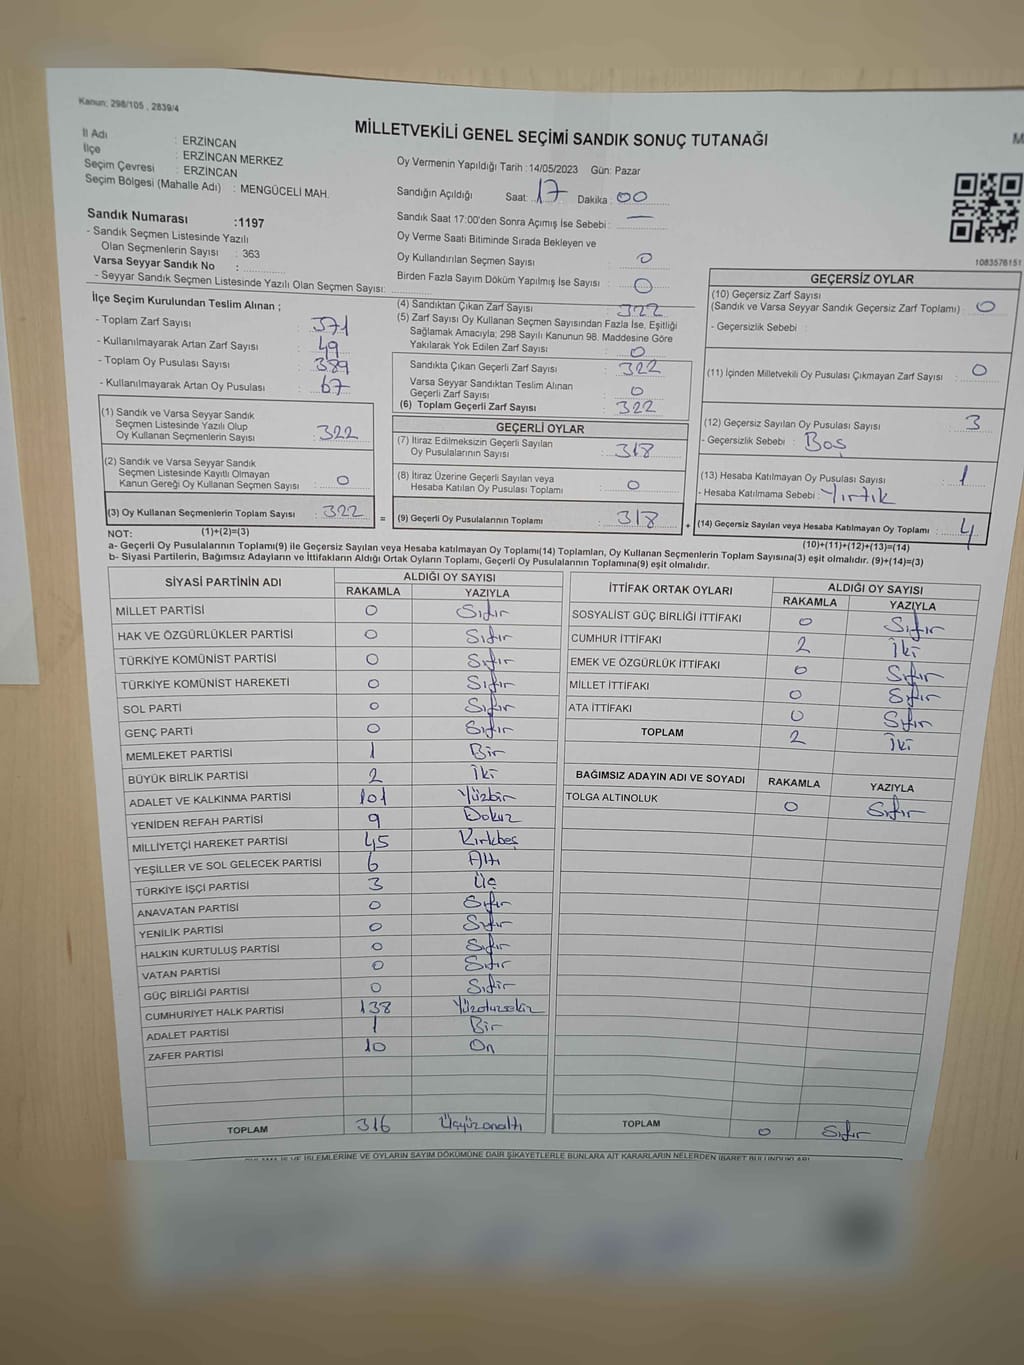 Kanun: 298/105 , 2839/4
MİLLETVEKİLİ GENEL SEÇİMİ SANDIK SONUÇ TUTANAĞI
M
İl Adı : ERZİNCAN
İlçe : ERZİNCAN MERKEZ
Seçim Çevresi : ERZİNCAN
Seçim Bölgesi (Mahalle Adı) : MENGÜCELİ MAH.
Sandık Numarası :1197
- Sandık Seçmen Listesinde Yazılı
Olan Seçmenlerin Sayısı : 363
Varsa Seyyar Sandık No :
- Seyyar Sandık Seçmen Listesinde Yazılı Olan Seçmen Sayısı:
Oy Vermenin Yapıldığı Tarih :14/05/2023 Gün: Pazar
Sandığın Açıldığı Saat: 17 Dakika : 00
Sandık Saat 17:00'den Sonra Açımış İse Sebebi : —
Oy Verme Saati Bitiminde Sırada Bekleyen ve
Oy Kullandırılan Seçmen Sayısı : 0
Birden Fazla Sayım Döküm Yapılmış İse Sayısı : 0
1083576151
İlçe Seçim Kurulundan Teslim Alınan ;
- Toplam Zarf Sayısı : 371
- Kullanılmayarak Artan Zarf Sayısı : 49
- Toplam Oy Pusulası Sayısı : 389
- Kullanılmayarak Artan Oy Pusulası : 67
(1) Sandık ve Varsa Seyyar Sandık
Seçmen Listesinde Yazılı Olup
Oy Kullanan Seçmenlerin Sayısı : 322
(2) Sandık ve Varsa Seyyar Sandık
Seçmen Listesinde Kayıtlı Olmayan
Kanun Gereği Oy Kullanan Seçmen Sayısı : 0
(3) Oy Kullanan Seçmenlerin Toplam Sayısı : 322
(1)+(2)=(3)
(4) Sandıktan Çıkan Zarf Sayısı : 322
(5) Zarf Sayısı Oy Kullanan Seçmen Sayısından Fazla İse, Eşitliği
Sağlamak Amacıyla; 298 Sayılı Kanunun 98. Maddesine Göre
Yakılarak Yok Edilen Zarf Sayısı : 0
Sandıkta Çıkan Geçerli Zarf Sayısı : 322
Varsa Seyyar Sandıktan Teslim Alınan
Geçerli Zarf Sayısı : 0
(6) Toplam Geçerli Zarf Sayısı : 322
GEÇERLİ OYLAR
(7) İtiraz Edilmeksizin Geçerli Sayılan
Oy Pusulalarının Sayısı : 318
(8) İtiraz Üzerine Geçerli Sayılan veya
Hesaba Katılan Oy Pusulası Toplamı : 0
= (9) Geçerli Oy Pusulalarının Toplamı : 318
GEÇERSİZ OYLAR
(10) Geçersiz Zarf Sayısı
(Sandık ve Varsa Seyyar Sandık Geçersiz Zarf Toplamı) : 0
- Geçersizlik Sebebi :
(11) İçinden Milletvekili Oy Pusulası Çıkmayan Zarf Sayısı : 0
(12) Geçersiz Sayılan Oy Pusulası Sayısı : 3
- Geçersizlik Sebebi : Boş
(13) Hesaba Katılmayan Oy Pusulası Sayısı : 1
- Hesaba Katılmama Sebebi : Yırtık
+ (14) Geçersiz Sayılan veya Hesaba Katılmayan Oy Toplamı : 4
(10)+(11)+(12)+(13)=(14)
NOT:
a- Geçerli Oy Pusulalarının Toplamı(9) ile Geçersiz Sayılan veya Hesaba katılmayan Oy Toplamı(14) Toplamları, Oy Kullanan Seçmenlerin Toplam Sayısına(3) eşit olmalıdır. (9)+(14)=(3)
b- Siyasi Partilerin, Bağımsız Adayların ve İttifakların Aldığı Ortak Oyların Toplamı, Geçerli Oy Pusulalarının Toplamına(9) eşit olmalıdır.
SİYASİ PARTİNİN ADI ALDIĞI OY SAYISI
RAKAMLA YAZIYLA
MİLLET PARTİSİ 0 Sıfır
HAK VE ÖZGÜRLÜKLER PARTİSİ 0 Sıfır
TÜRKİYE KOMÜNİST PARTİSİ 0 Sıfır
TÜRKİYE KOMÜNİST HAREKETİ 0 Sıfır
SOL PARTİ 0 Sıfır
GENÇ PARTİ 0 Sıfır
MEMLEKET PARTİSİ 1 Bir
BÜYÜK BİRLİK PARTİSİ 2 İki
ADALET VE KALKINMA PARTİSİ 101 Yüzbir
YENİDEN REFAH PARTİSİ 9 Dokuz
MİLLİYETÇİ HAREKET PARTİSİ 45 Kırkbeş
YEŞİLLER VE SOL GELECEK PARTİSİ 6 Altı
TÜRKİYE İŞÇİ PARTİSİ 3 Üç
ANAVATAN PARTİSİ 0 Sıfır
YENİLİK PARTİSİ 0 Sıfır
HALKIN KURTULUŞ PARTİSİ 0 Sıfır
VATAN PARTİSİ 0 Sıfır
GÜÇ BİRLİĞİ PARTİSİ 0 Sıfır
CUMHURİYET HALK PARTİSİ 138
ADALET PARTİSİ 1 Bir
ZAFER PARTİSİ 10 On
TOPLAM 316 Üçyüzonaltı
İTTİFAK ORTAK OYLARI ALDIĞI OY SAYISI
RAKAMLA YAZIYLA
SOSYALİST GÜÇ BİRLİĞİ İTTİFAKI 0 Sıfır
CUMHUR İTTİFAKI 2 İki
EMEK VE ÖZGÜRLÜK İTTİFAKI 0 Sıfır
MİLLET İTTİFAKI 0 Sıfır
ATA İTTİFAKI 0 Sıfır
TOPLAM 2 İki
BAĞIMSIZ ADAYIN ADI VE SOYADI RAKAMLA YAZIYLA
TOLGA ALTINOLUK 0 Sıfır
TOPLAM 0 Sıfır
İŞLEMLERİNE VE OYLARIN SAYIM DÖKÜMÜNE DAİR ŞİKAYETLERLE BUNLARA AİT KARARLARIN NELERDEN İBARET